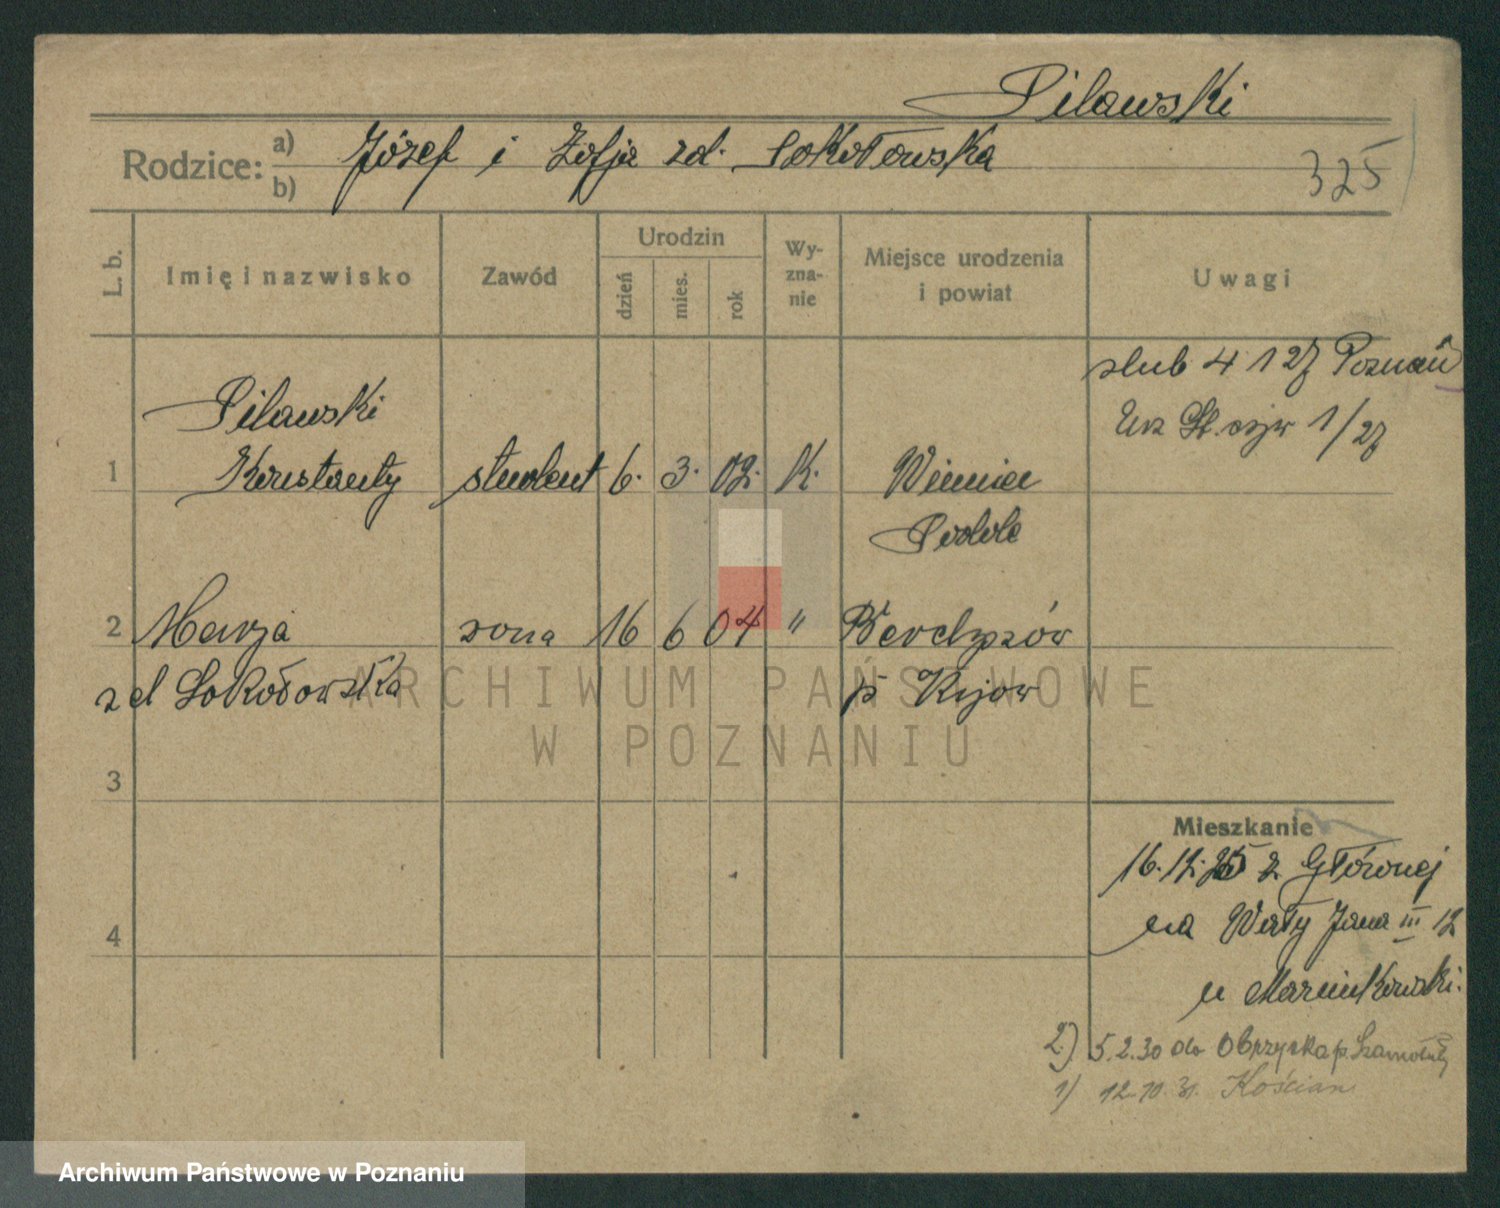 Pilawski
Rodzice: a) b) Józef i Zofja zd. Sokołowska
325
L. b.
Imię i nazwisko
Zawód
Urodzin
dzień
mies.
rok
Wy-
zna-
nie
Miejsce urodzenia
i powiat
Uwagi
ślub 4 1 27 Poznań
Urz St. cyw 1/27
Pilawski
1 Konstanty student 6. 3. 02. K. Winnica
Podole
2 Marja żona 16 6 04 " Berdyczów
zd Sokołowska p Kijów
ARCHIWUM PAŃSTWOWE
W POZNANIU
3
Mieszkanie
16.12.25 z Głównej
4
na Wały Jana III 12
u Marcinkowski.
2) 5.2.30 do Obrzycka p. Szamotuły
1) 12.10.31. Kościan
Archiwum Państwowe w Poznaniu